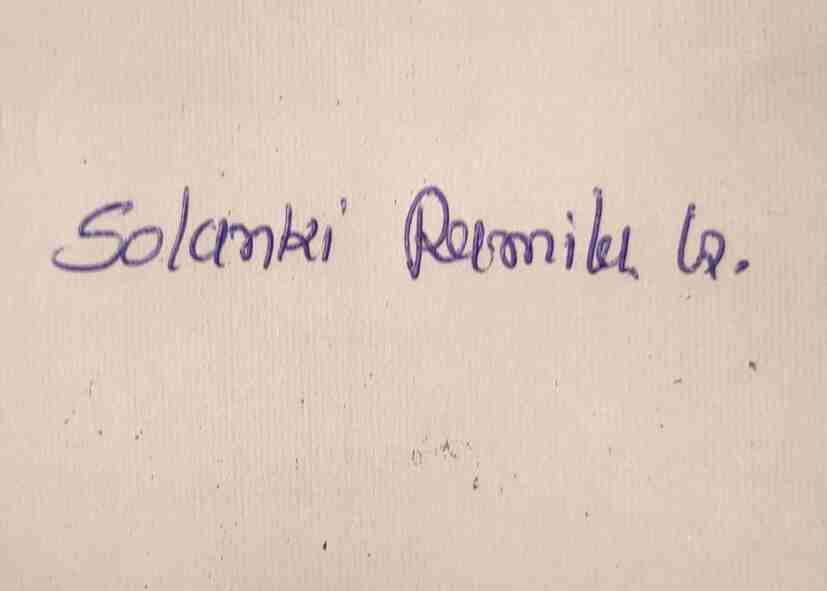 Solanki Raunik G.